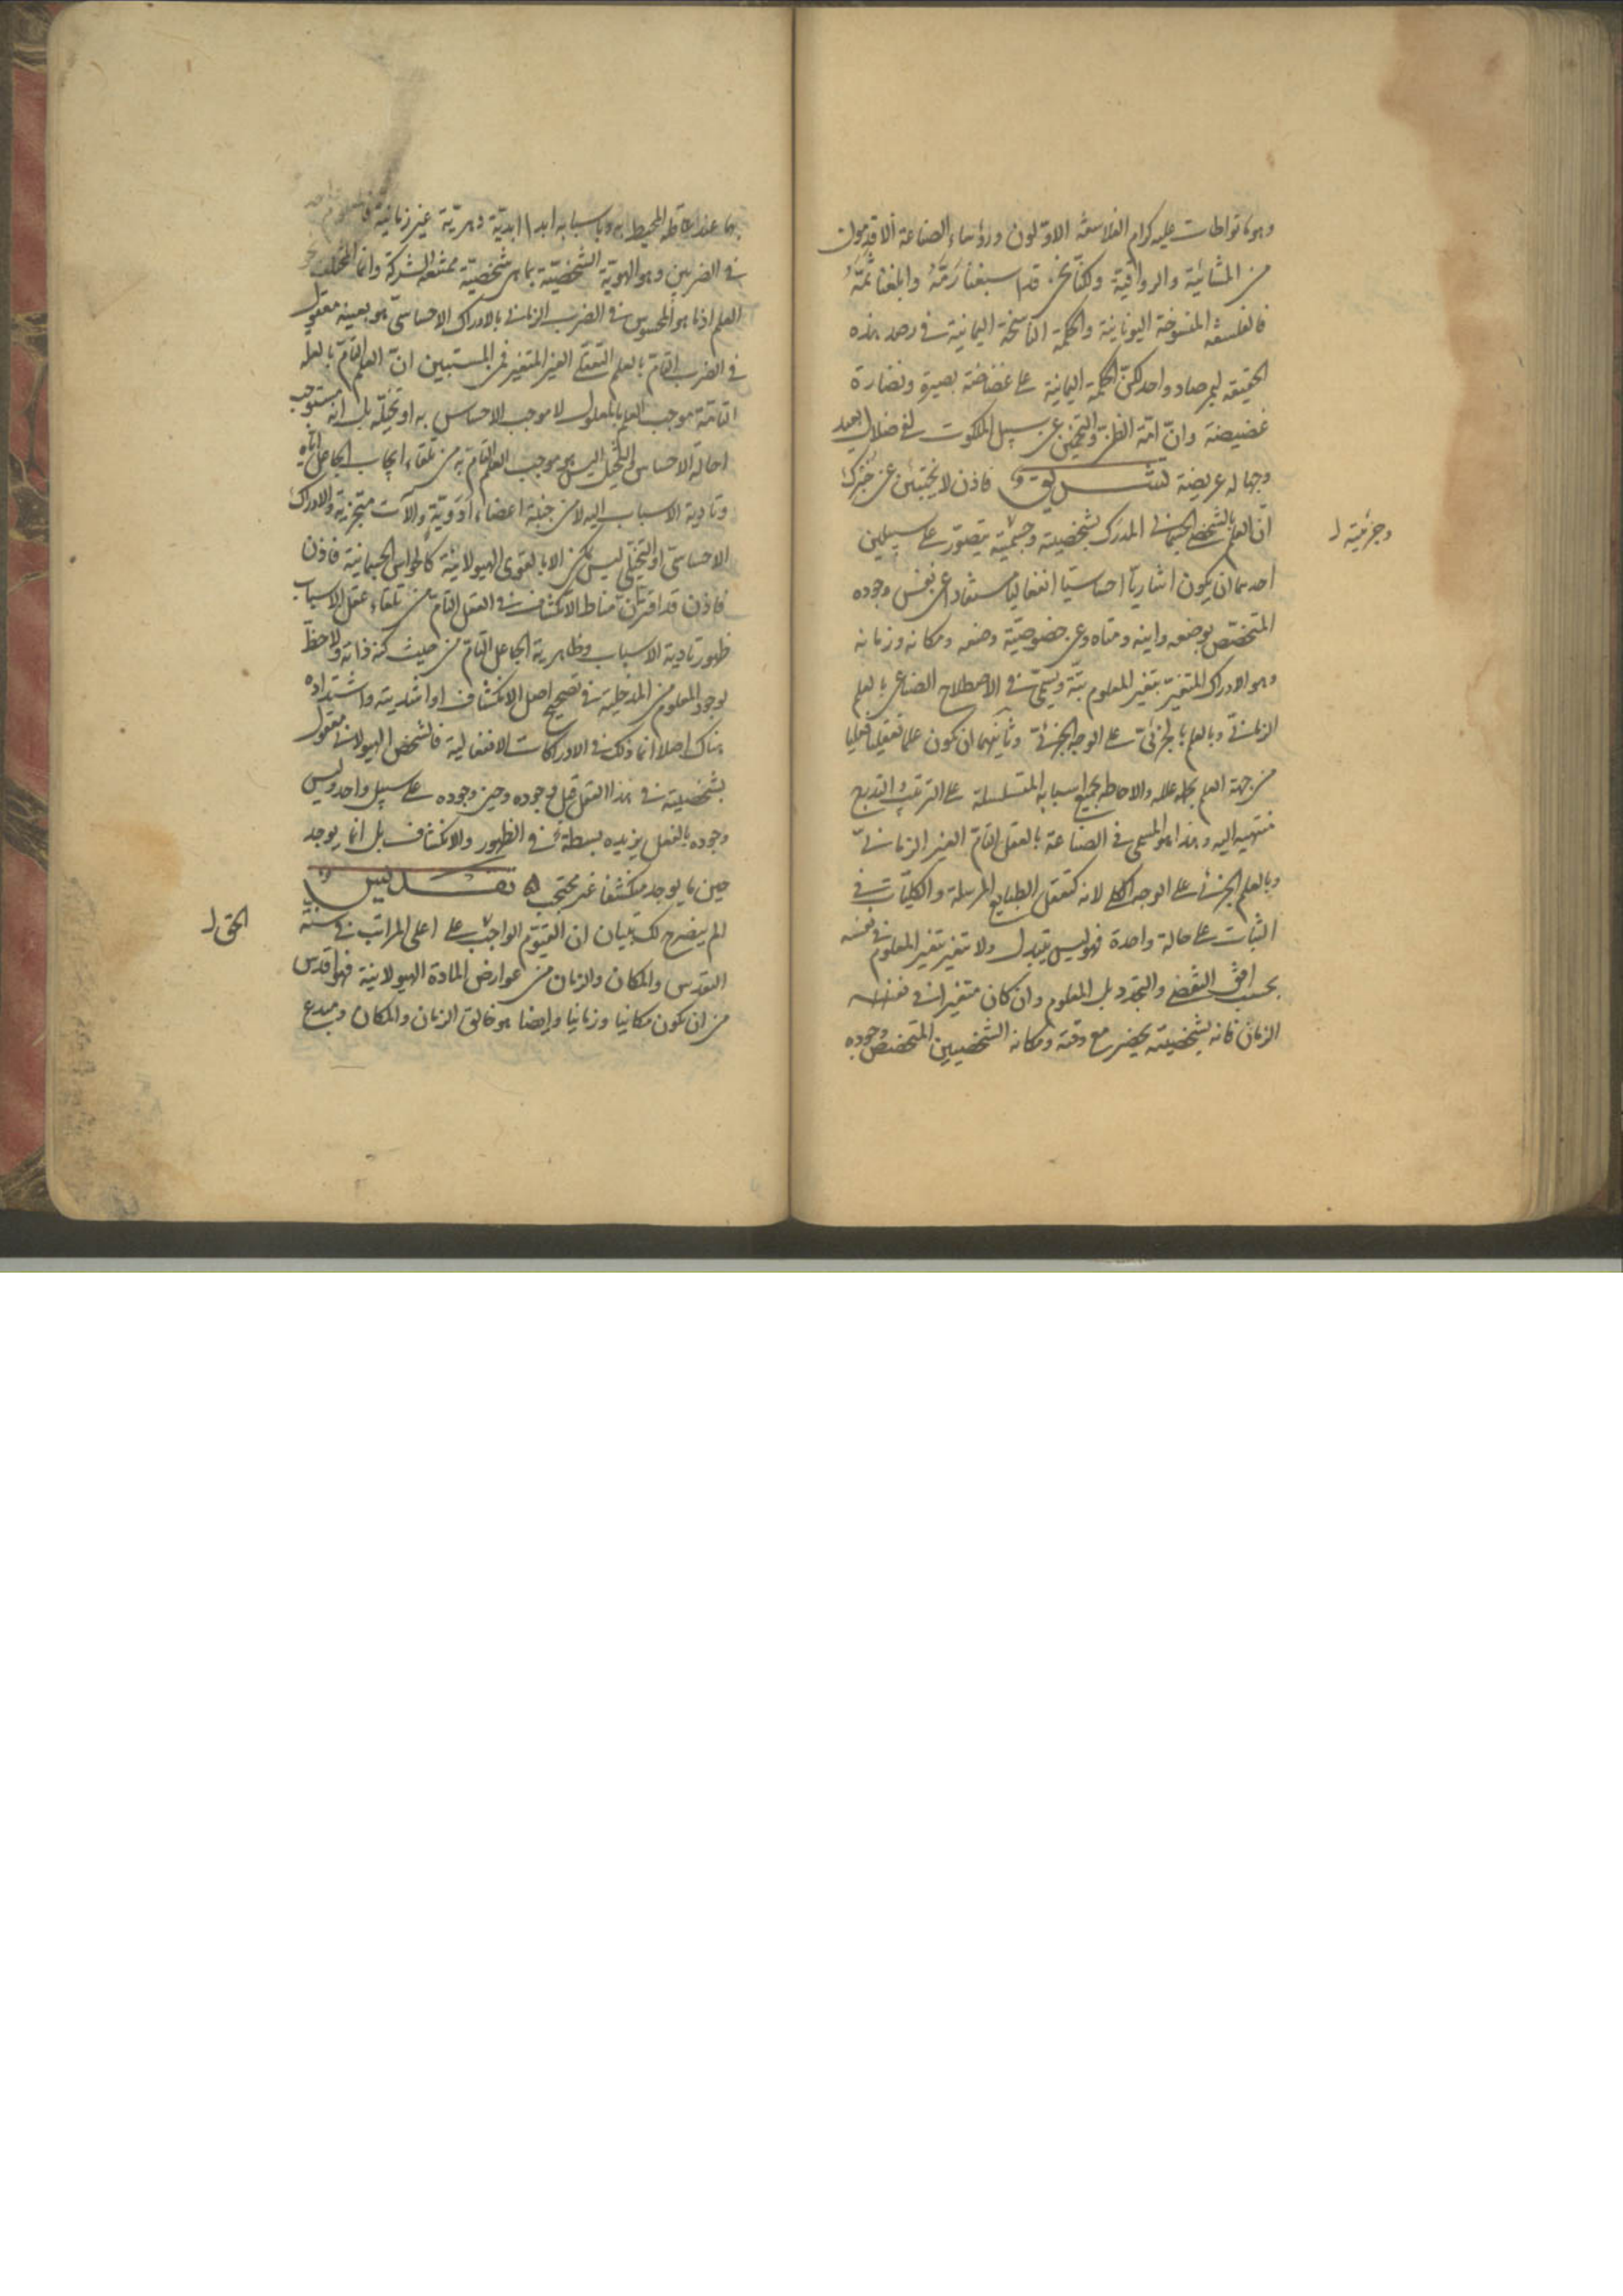 وهو ما تواطأت عليه كرام الفلاسفة الاوّلون ورؤساء الصناعة الاقدمون
من المشائية والرواقية ولكنّا نحن قد اسبغنا رَمَّهُ وابلغنا ثَمَّهُ
فالفلسفة المنسوخة اليونانية والحكمة الناسخة اليمانية في رصد هذه
الحقيقة بمرصاد واحد لكنّ الحكمة اليمانية على غضاضة بصيرة ونضارة
غضيضة وانّ امّة الظنّ والتخمين عن سبيل الملكوت لفي ضلال بعيد
وجهالة عريضة تشريق فاذن لا يختبئنّ عن خُبرك
انّ العلم بالشخص الجسماني المدرك بشخصيته وجسميته يتصوّر على سبيلين
وجزئيته ل
احدهما ان يكون اشاريّا احساسيّا انفعاليا مستفادا عن نفس وجوده
المتخصّص بوضعه واينه ومتاه وعن خصوصيّة وضعه ومكانه وزمانه
وهو الادراك المتغيّر بتغير المعلوم بتّة ويسمّى في الاصطلاح الصناعي بالعلم
الزماني وبالعلم بالجزئي على الوجه الجزئي وثانيهما ان يكون علما تعقّليا فعليا
من جهة العلم بعلله والاحاطة بجميع اسبابه المتسلسلة على الترتيب والتدريج
منتهية اليه وهذا هو المسمى في الصناعة بالعقل التامّ الغير الزماني
وبالعلم الجزئي على الوجه الكلي لانه كتعقل الطبايع المرسلة والكليّات في
الثبات على حالة واحدة فهو ليس يتبدل ولا يتغير بتغير المعلوم في نفسه
بحسب افق التقضي والتجدد بل المعلوم وان كان متغيرا في نفسه
الزماني فانه بشخصيته يحضر مع وقته ومكانه الشخصيين المتخصص وجوده
بهما عند عاقله المحيط به وباسبابه ابدا ابديّة دهريّة غير زمانية
في الضربين وهو الهويّة الشخصيّة بما هي شخصيّة ممتنعة الشركة وانما المختلف
العلم اذ ما هو المحسوس في الضرب الزماني بالادراك الاحساسيّ هو بعينه معقول
في الضرب التامّ بالعلم التعقّلي الغير المتغير فمن المستبين انّ العلم التامّ بالعلة
التامّة موجب العلم بالمعلول لا موجب الاحساس به او تخيّله بل انه مستوجب
احالة الاحساس والتخيّل اليس هو موجب العلم التامّ به من تلقاء ايجاب الجاعل ايّاه
وتادية الاسباب اليه لا من جنبة اعضاء ادويّة وآلات متجزية والادراك
الاحساسّي او التخيّلي ليس يمكن الا بالقوى الهيولانية كالحواس الجسمانية فاذن
فاذن قد اقترّان مناط الانكشاف في العقل التامّ من تلقاء عقل الاسباب
ظهور تادية الاسباب وظاهرية الجاعل التامّ من حيث كنه ذاته ولا حظّ
لوجود المعلوم من المدخلية في تصحيح اصل الانكشاف او اشديته واشتداده
هناك اصلا انما ذلك في الادراكات الانفعالية فالشخص الهيولاني معقول
بشخصيته في هذا التعقل قبل وجوده وحين وجوده على سبيل واحد وليس
وجوده بالفعل يزيده بسطة في الظهور والانكشاف بل انما يوجد
حين ما يوجد منكشفا غير محتجب ۵ تقديس
الم يتضح لك ببيان ان القيّوم الواجب على اعلى المراتب في سنّة
الحق ل
التقدس والمكان والزمان من عوارض المادة الهيولانية فهو اقدس
من ان يكون مكانيا وزمانيا وايضا هو خالق الزمان والمكان ومبدع